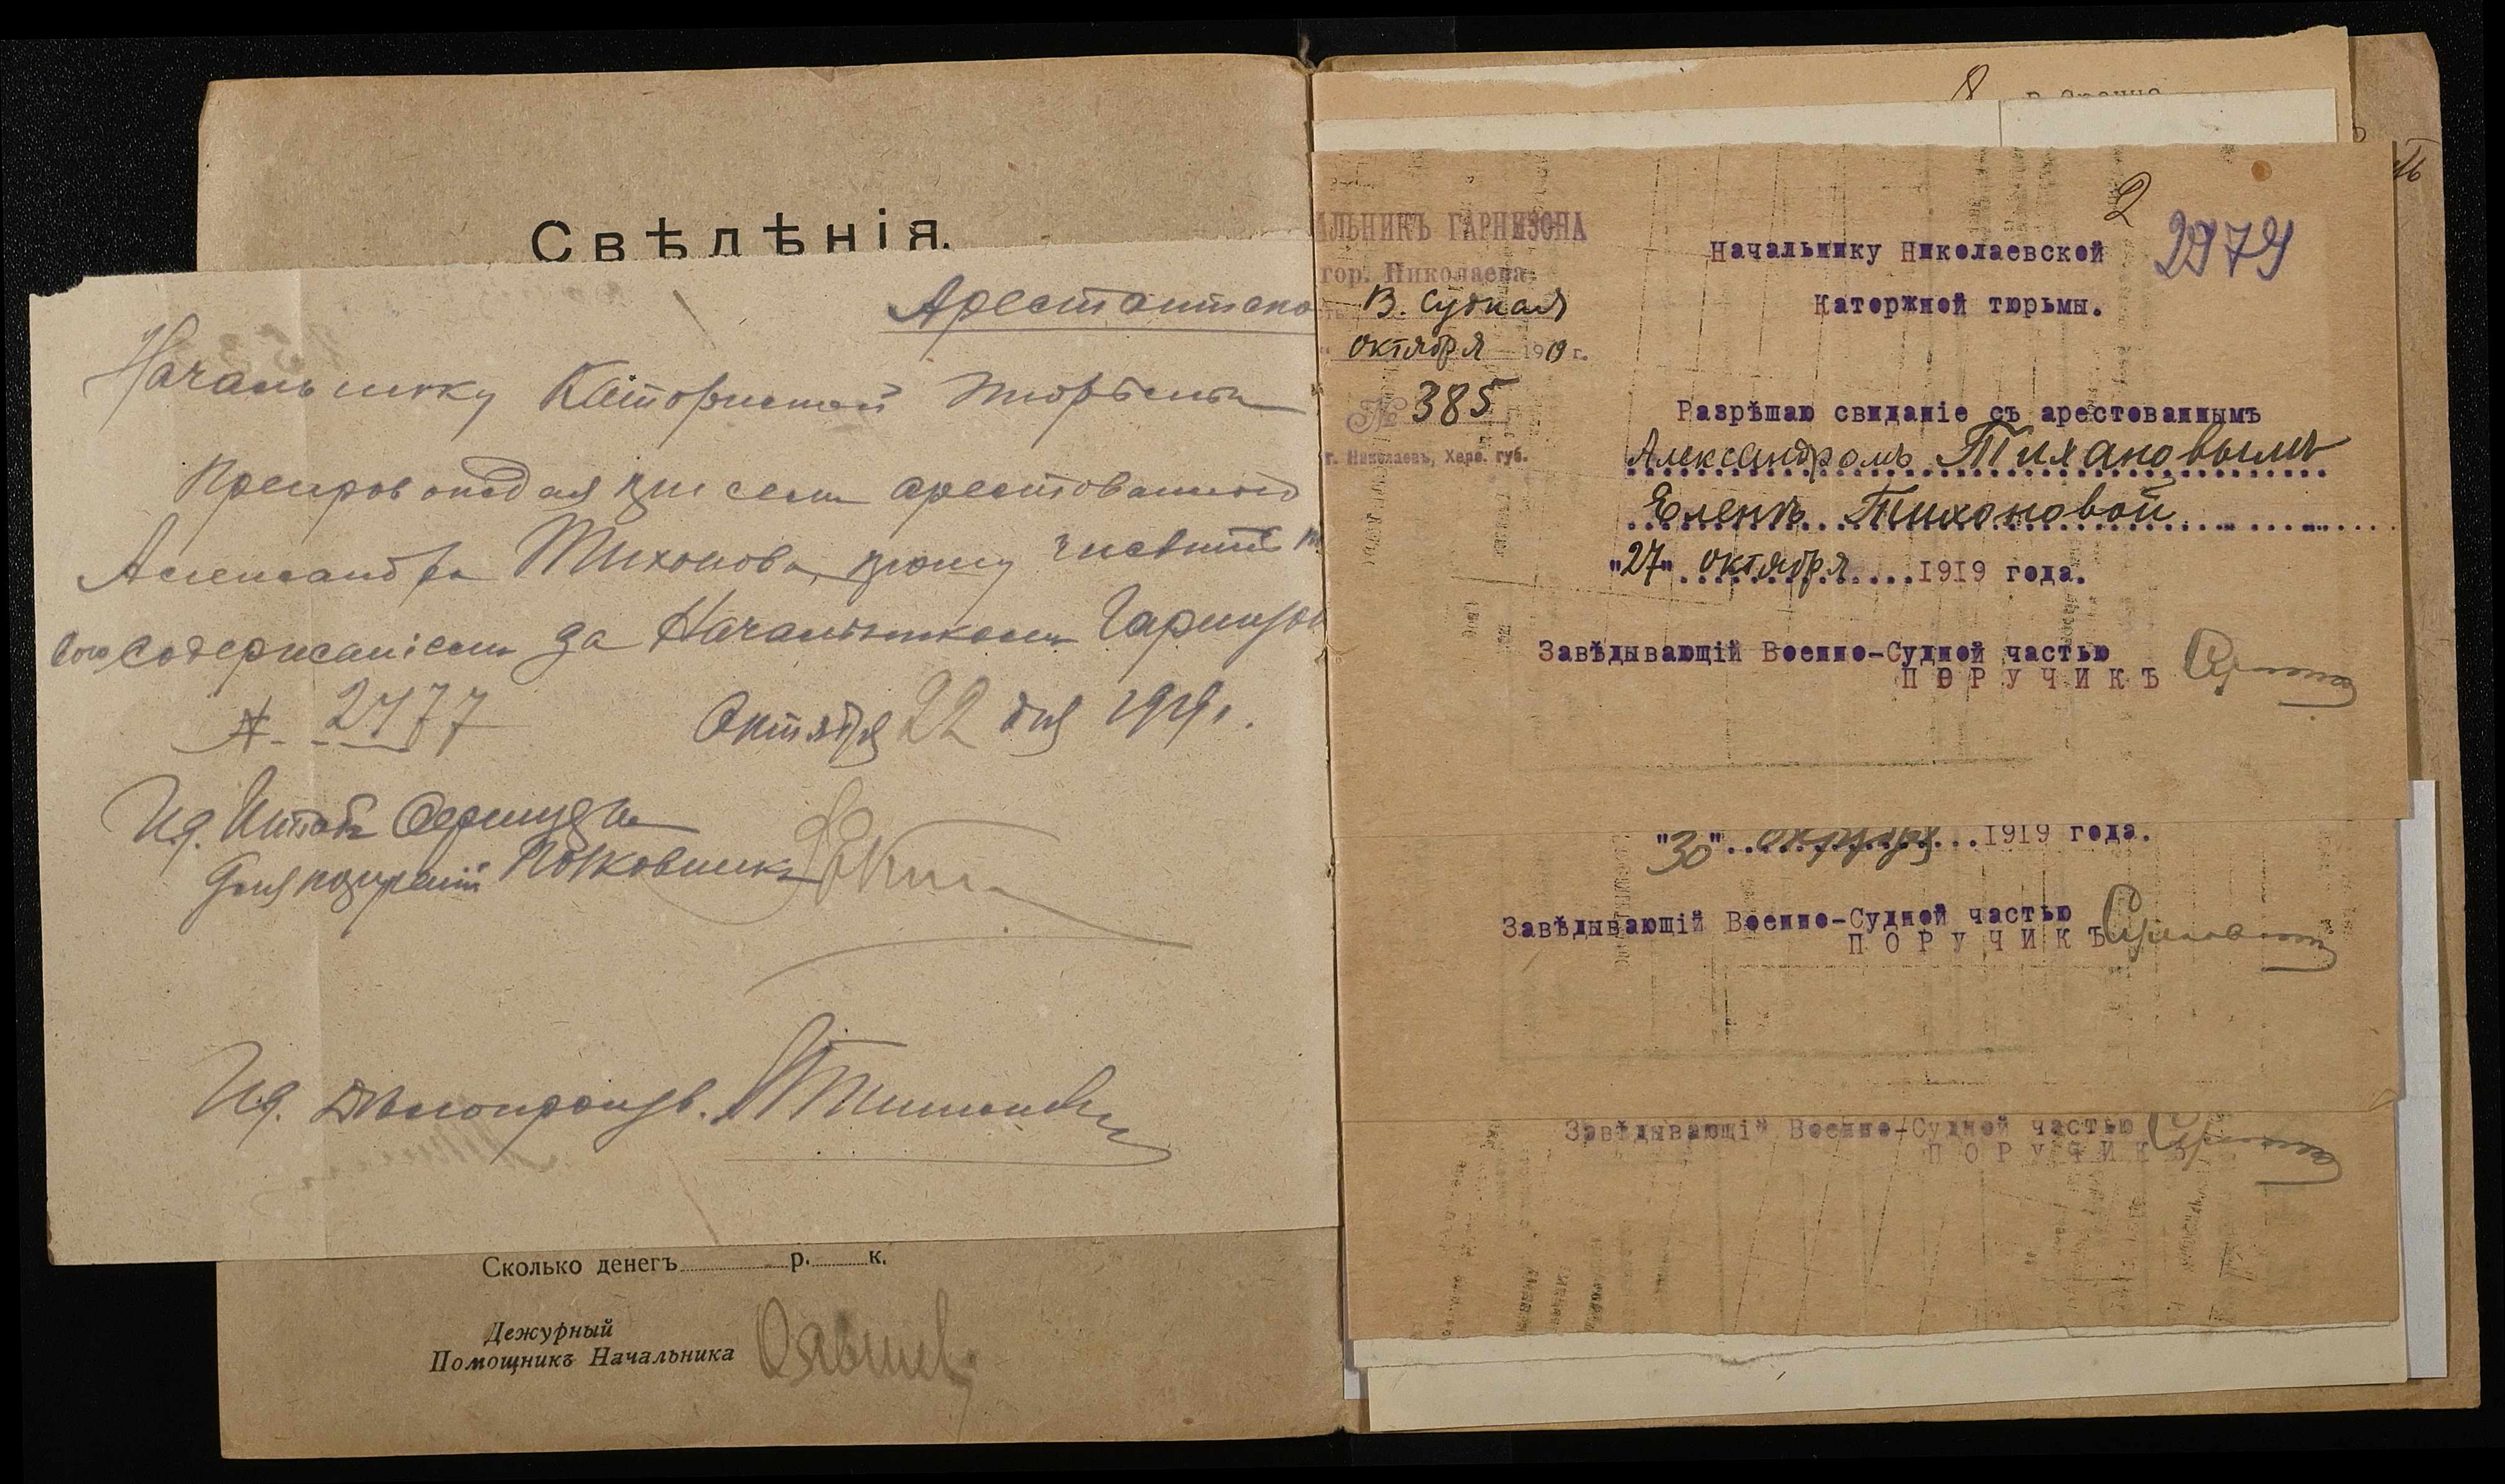 Свѣдѣнія.
Арестантско
Начальнику Каторжной тюрьмы
Препровождая при семъ арестованного
Александра Тихонова, прошу числить
содержаніемъ за Начальникомъ Гарнизон
№ 2477 Октября 22 дня 1919 г.
И.д. Штабъ Офицера
для поручений Полковникъ
И.д. Дѣлопроизв.
Сколько денегъ р. к.
Дежурный
Помощникъ Начальника
8
АЛЬНИКЪ ГАРНИЗОНА
гор. Николаева
В. Судная
октября 1919 г.
№ 385
г. Николаевъ, Херс. губ.
2
2979
Начальнику Николаевской
Каторжной тюрьмы.
Разрѣшаю свиданіе съ арестованнымъ
Александромъ Тихановымъ
Еленѣ Тихоновой
"27" октября 1919 года.
Завѣдывающій Военно-Судной частью
ПОРУЧИКЪ
"30" октября 1919 года.
Завѣдывающій Военно-Судной частью
ПОРУЧИКЪ
Завѣдывающій Военно-Судной частью
ПОРУЧИКЪ